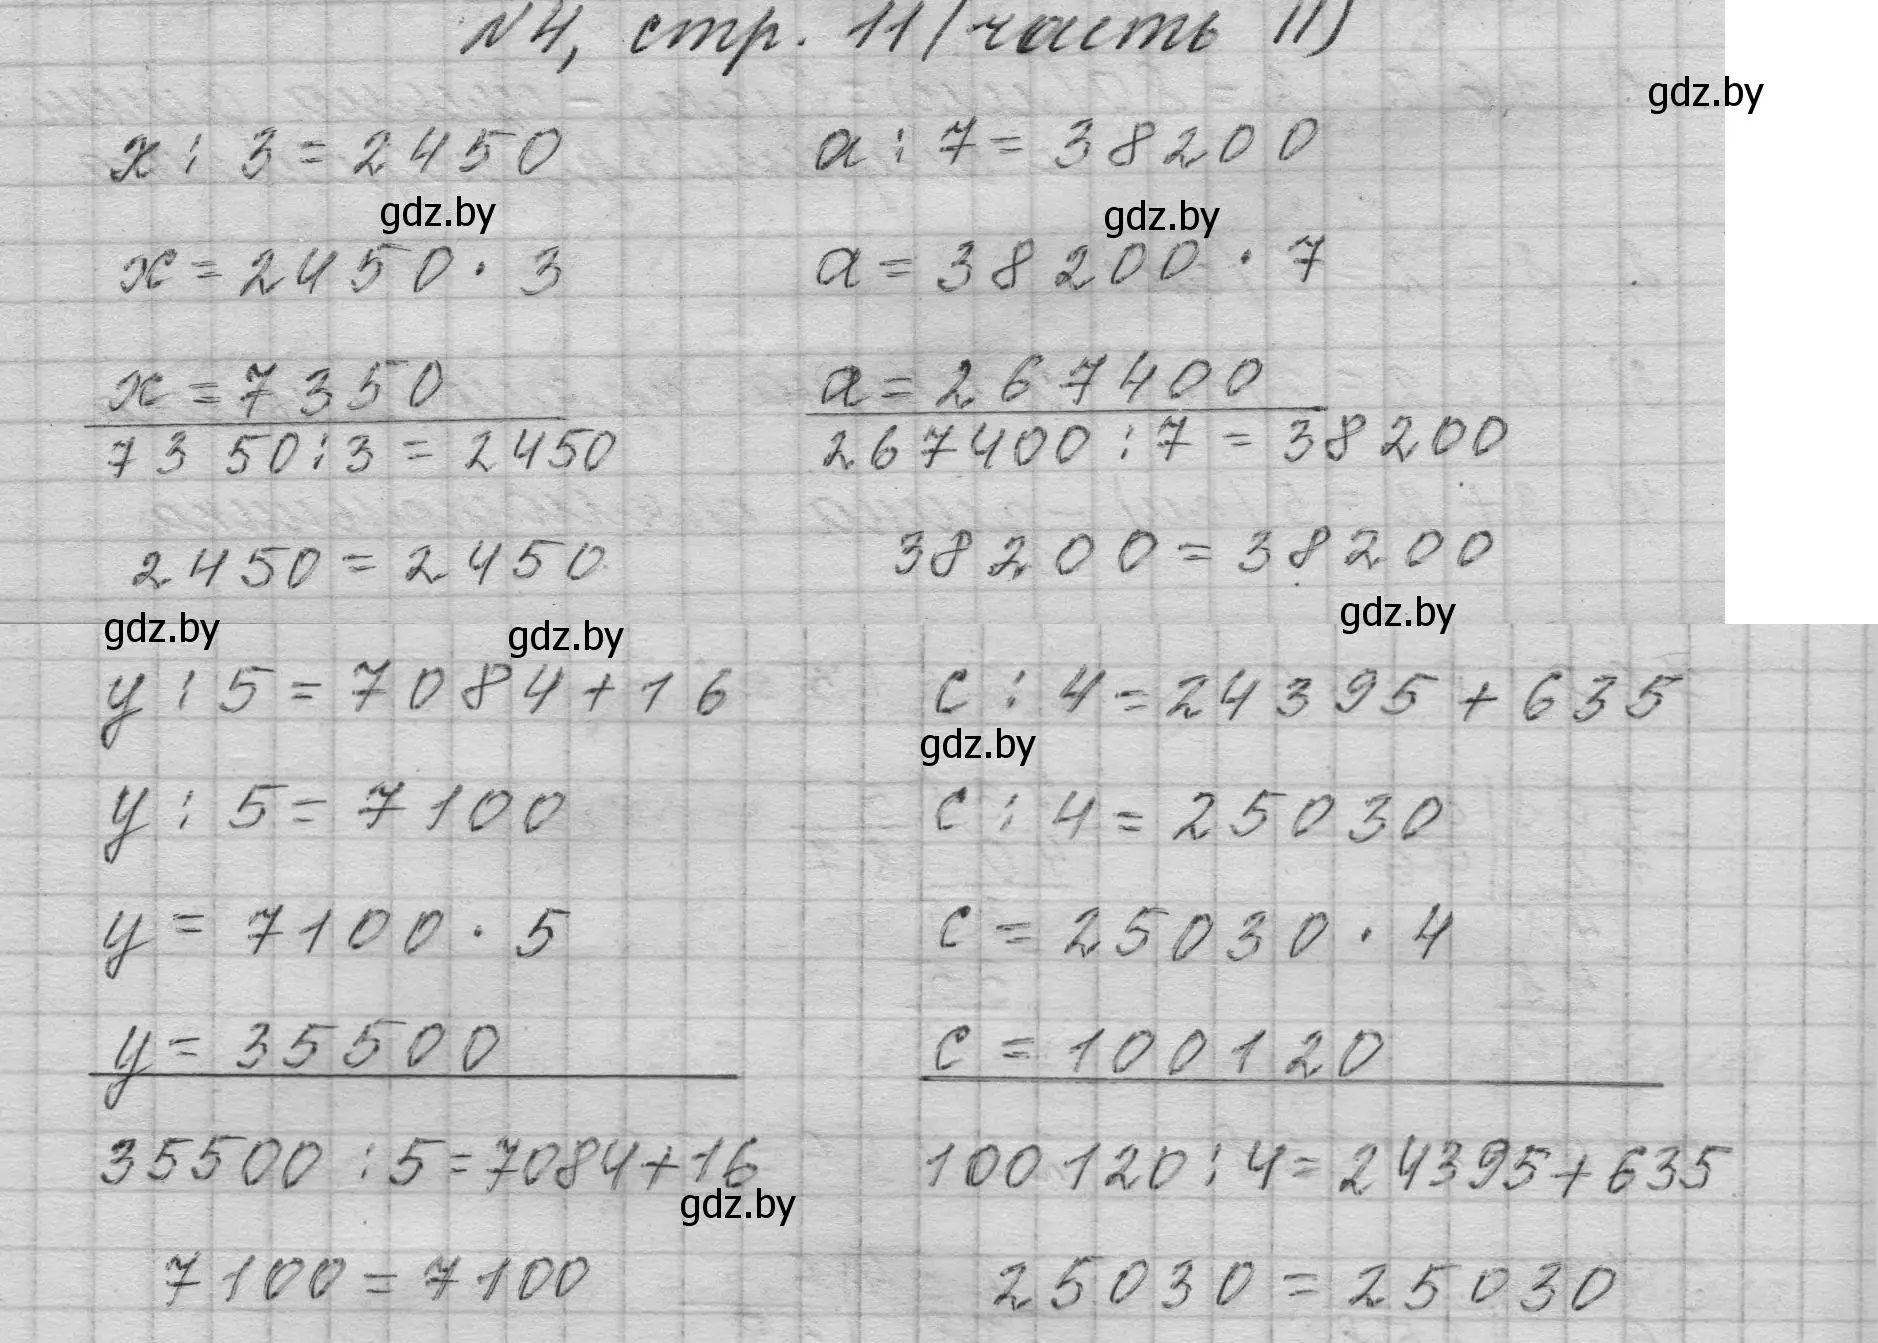 №4, стр. 11 (часть II)
gdz.by
x : 3 = 2450
gdz.by
x = 2450 · 3
x = 7350
7350 : 3 = 2450
2450 = 2450
gdz.by
a : 7 = 38200
gdz.by
a = 38200 · 7
a = 267400
267400 : 7 = 38200
38200 = 38200
gdz.by
gdz.by
y : 5 = 7084 + 16
y : 5 = 7100
y = 7100 · 5
y = 35500
35500 : 5 = 7084 + 16
gdz.by
7100 = 7100
c : 4 = 24395 + 635
gdz.by
c : 4 = 25030
c = 25030 · 4
c = 100120
100120 : 4 = 24395 + 635
25030 = 25030